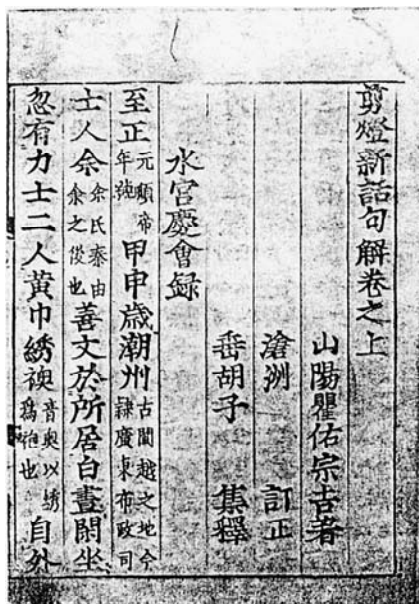 剪燈新話句解卷之上
山陽瞿佑宗吉著
滄洲 訂正
垂胡子 集釋
水宮慶會録
至正元順帝年號甲申歳潮州古閩越之地今隸廣東布政司
士人余余氏秦由余之後也善文於所居白晝閑坐
忽有力士二人黃巾綉襖音奥以綉爲也自外